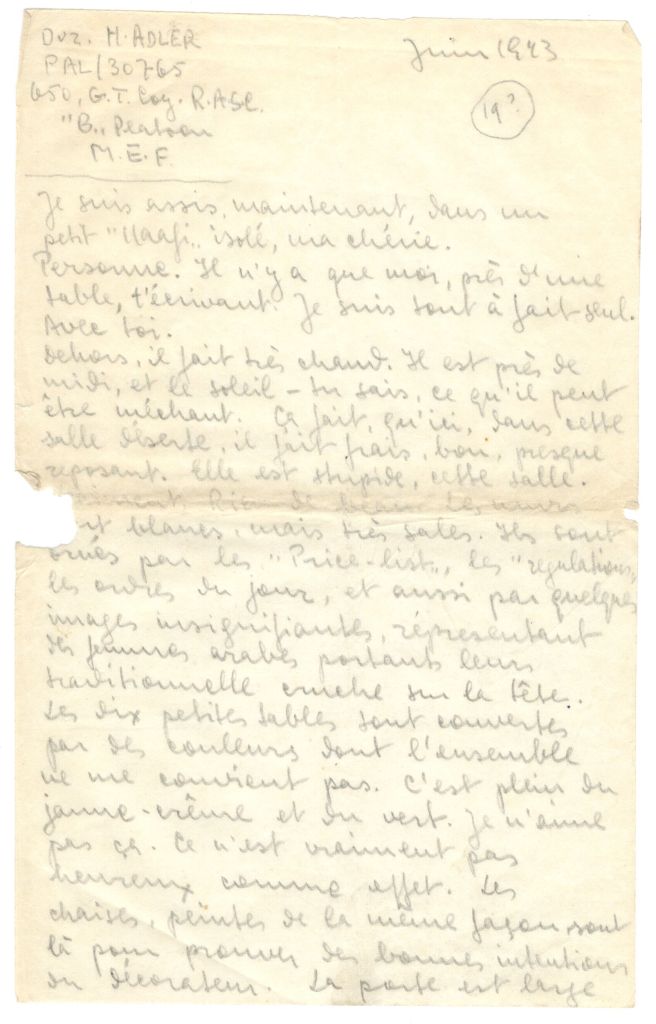 Dvr. M. ADLER
PAL/30765
650, G.T. Coy. R.A.S.C.
"B„ Platoon
M.E.F.
Juin 1943
19?
Je suis assis, maintenant, dans un
petit "Naafi„ isolé, ma chérie.
Personne. Il n'y a que moi, près d'une
table, t'écrivant. Je suis tout à fait seul.
Avec toi.
Dehors, il fait très chaud. Il est près de
midi, et le soleil – tu sais, ce qu'il peut
être méchant. Ça fait, qu'ici, dans cette
salle déserte, il fait frais, bon, presque
reposant. Elle est stupide, cette salle.
Rien de beau. Les murs
blancs, mais très sales. Ils sont
ornés par les "Price-list„, les "regulations„
les ordres du jour, et aussi par quelques
images insignifiantes, réprésentant
des femmes arabes portants leurs
traditionnelle cruche sur la tête.
Les dix petites tables sont couvertes
par des couleurs dont l'ensemble
ne me convient pas. C'est plein du
jaune-crême et du vert. Je n'aime
pas ça. Ce n'est vraiment pas
heureux comme effet. Les
chaises, peintes de la même façon, sont
là pour prouver des bonnes intentions
du décorateur. La porte est large